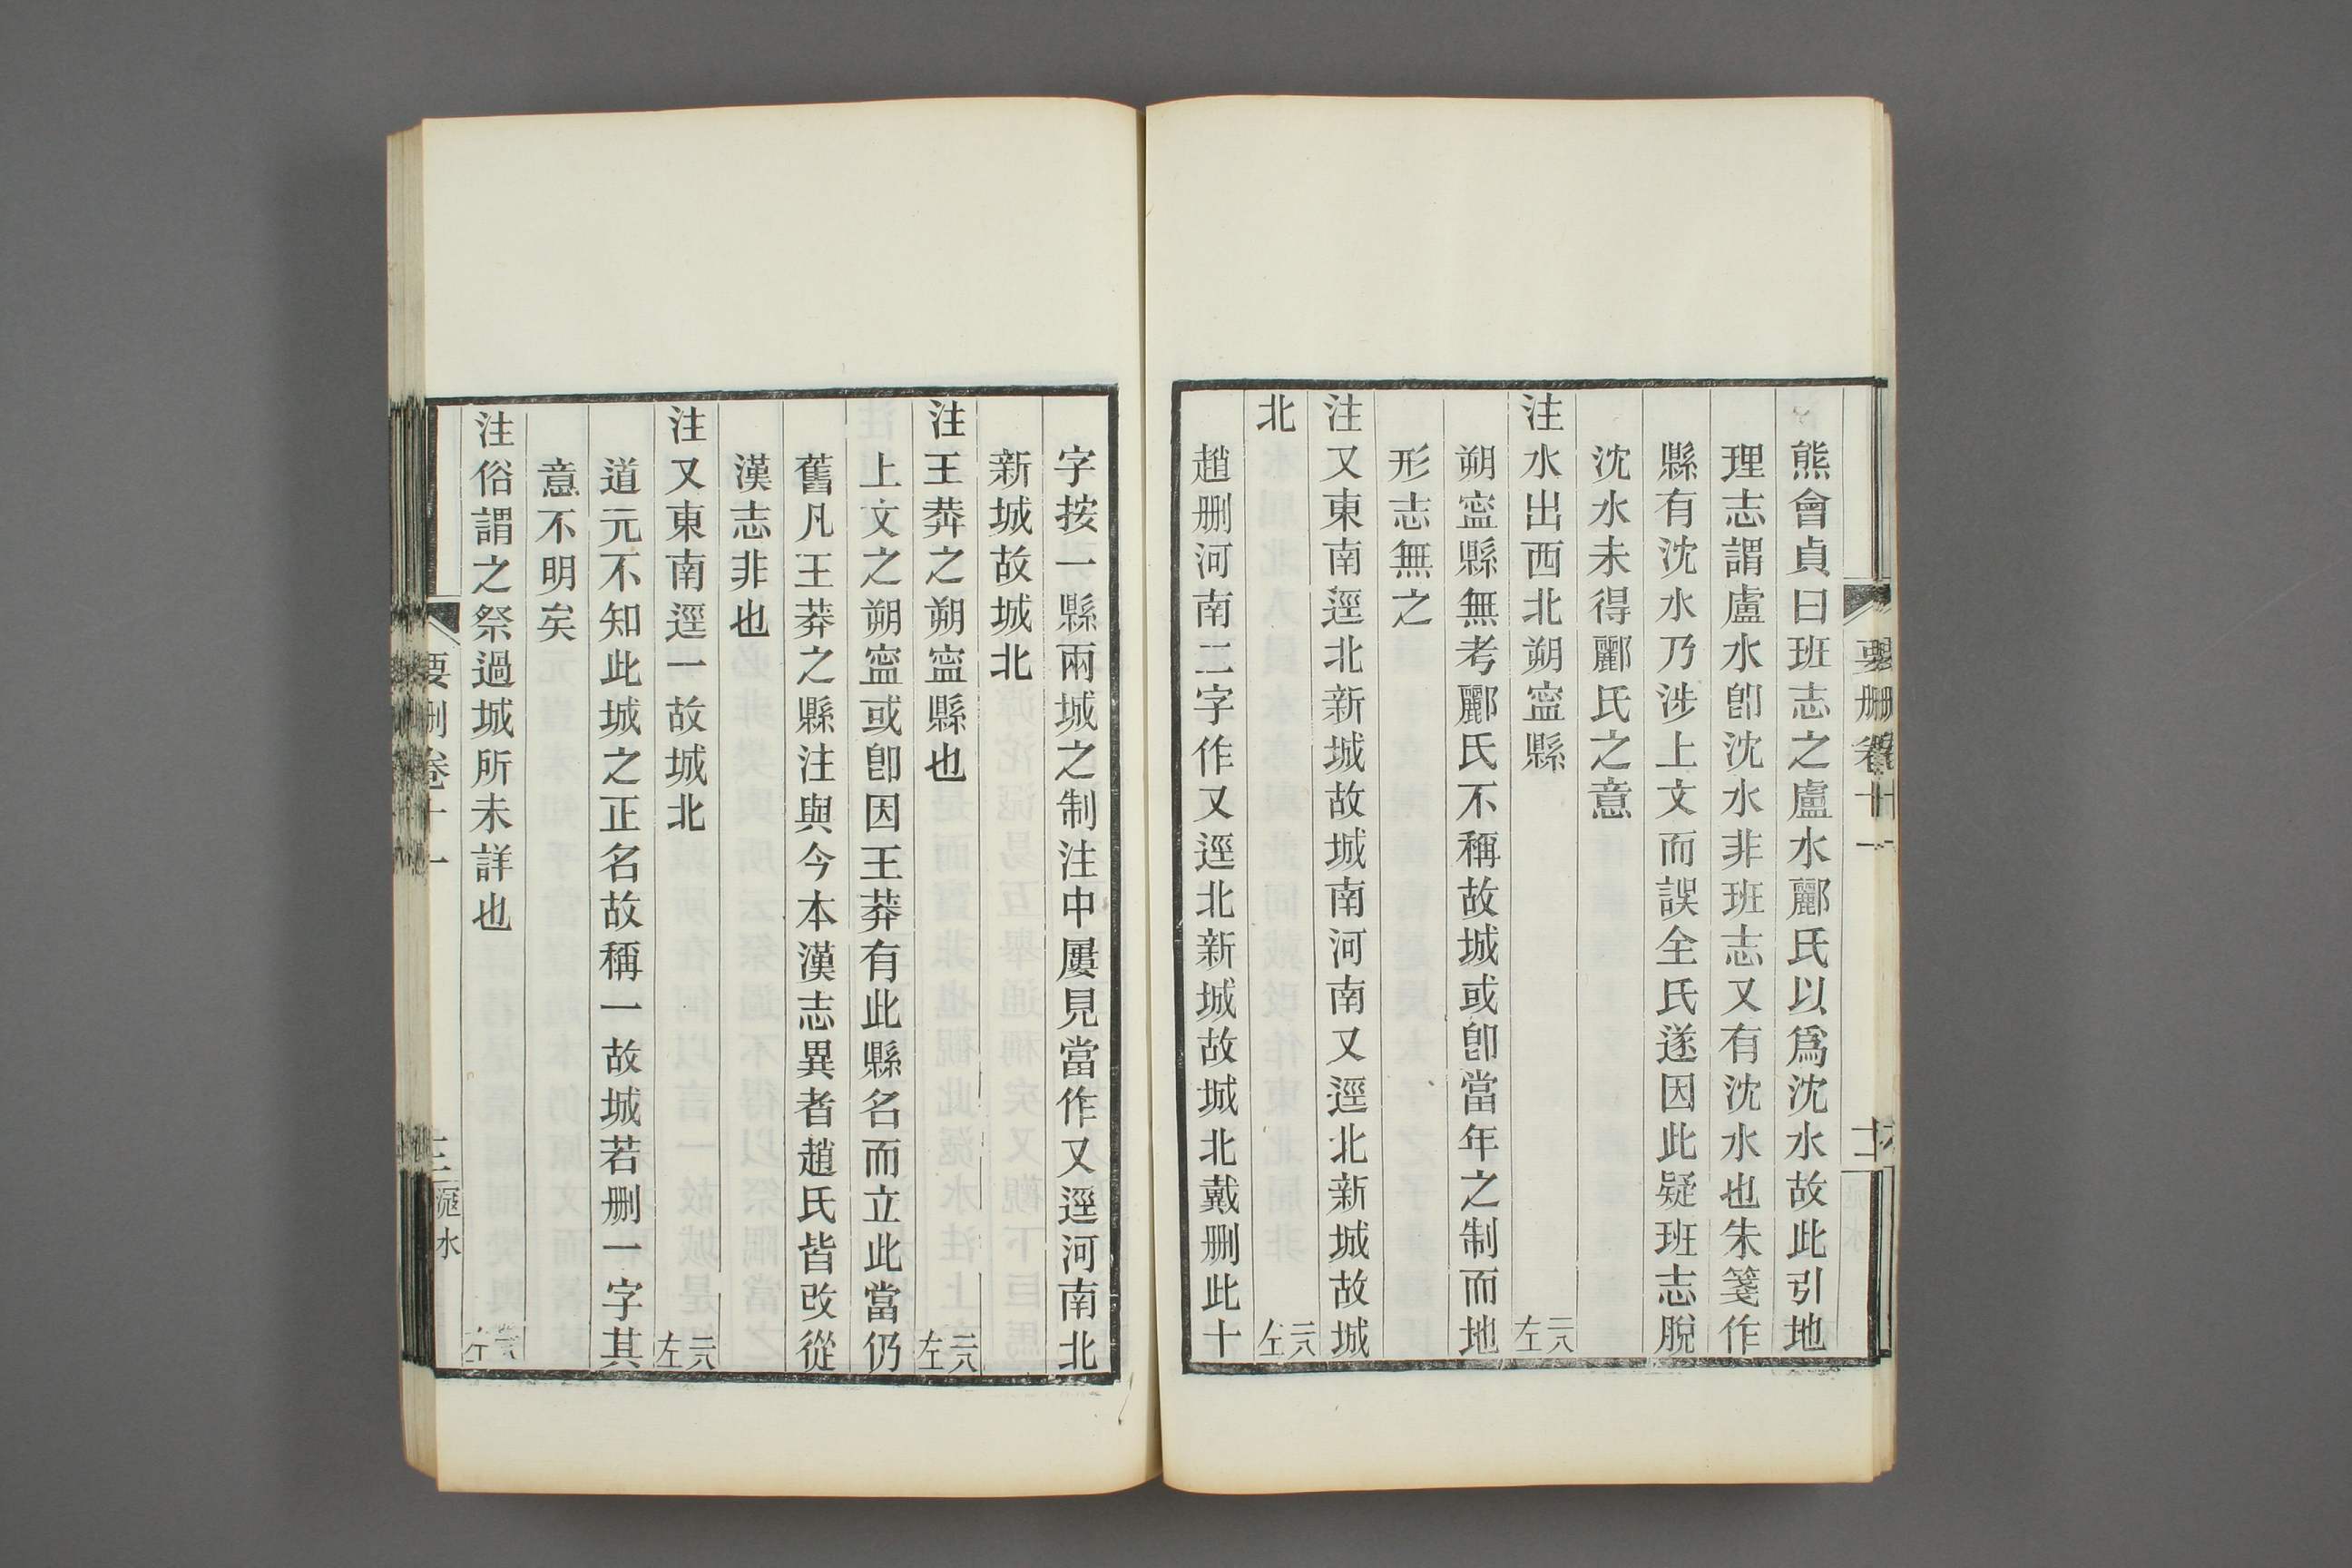 熊會貞曰班志之盧水酈氏以爲沈水故此引地
理志謂盧水卽沈水非班志又有沈水也朱箋作
縣有沈水乃涉上文而誤全氏遂因此疑班志脫
沈水未得酈氏之意
注水出西北朔寍縣 二八左
朔寍縣無考酈氏不稱故城或卽當年之制而地
形志無之
注又東南逕北新城故城南河南又逕北新城故城
北 二八左
趙刪河南二字作又逕北新城故城北戴刪此十
字按一縣兩城之制注中屢見當作又逕河南北
新城故城北
注王莽之朔寍縣也 二八左
上文之朔寍或卽因王莽有此縣名而立此當仍
舊凡王莽之縣注與今本漢志異者趙氏皆改從
漢志非也
注又東南逕一故城北 二八左
道元不知此城之正名故稱一故城若刪一字其
意不明矣
注俗謂之祭過城所未詳也
要刪卷十一
滱水